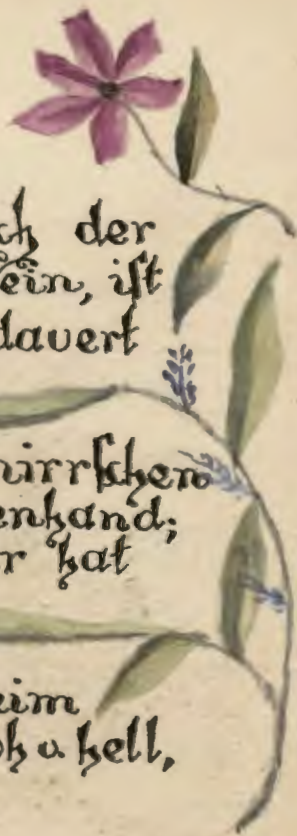 ch der
ein, ist
dauert
nirrschen
enhand;
r hat
eim
oh u. hell,